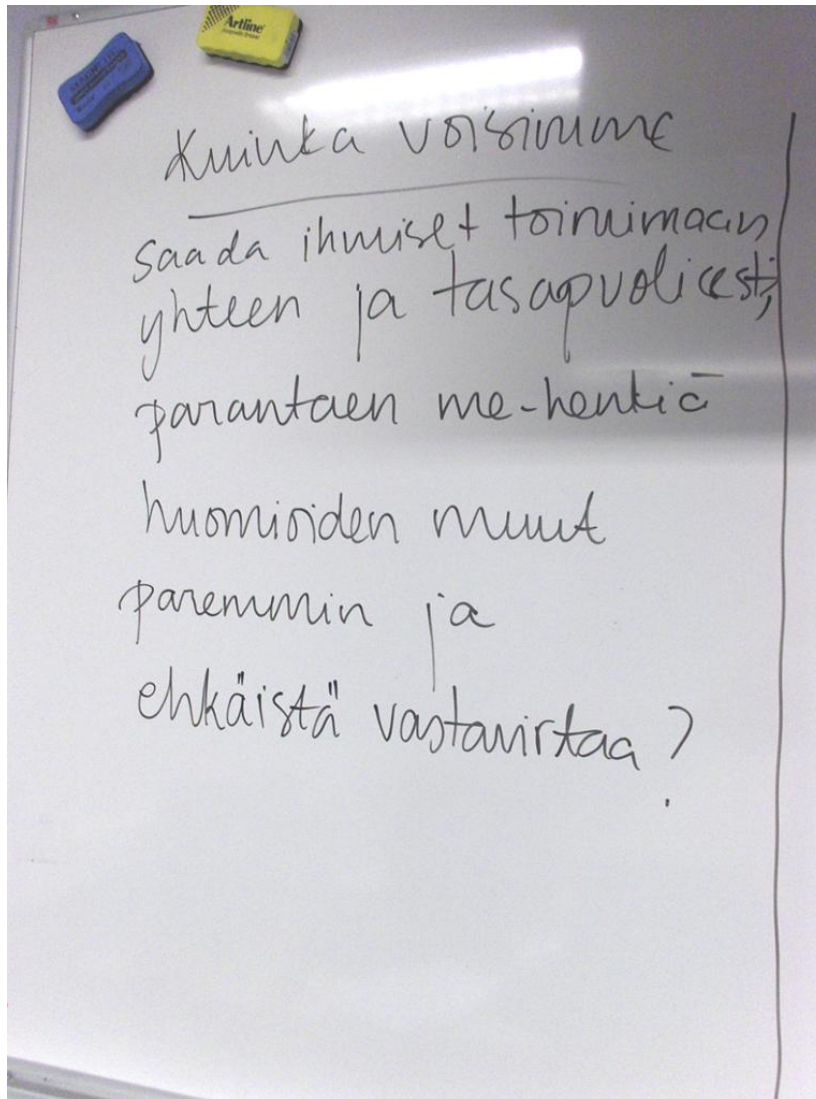 Artline
Kuinka voisimme
saada ihmiset toimimaan
yhteen ja tasapuolisesti,
parantaen me-henkiä
huomioiden muut
paremmin ja
ehkäistä vastavirtaa?